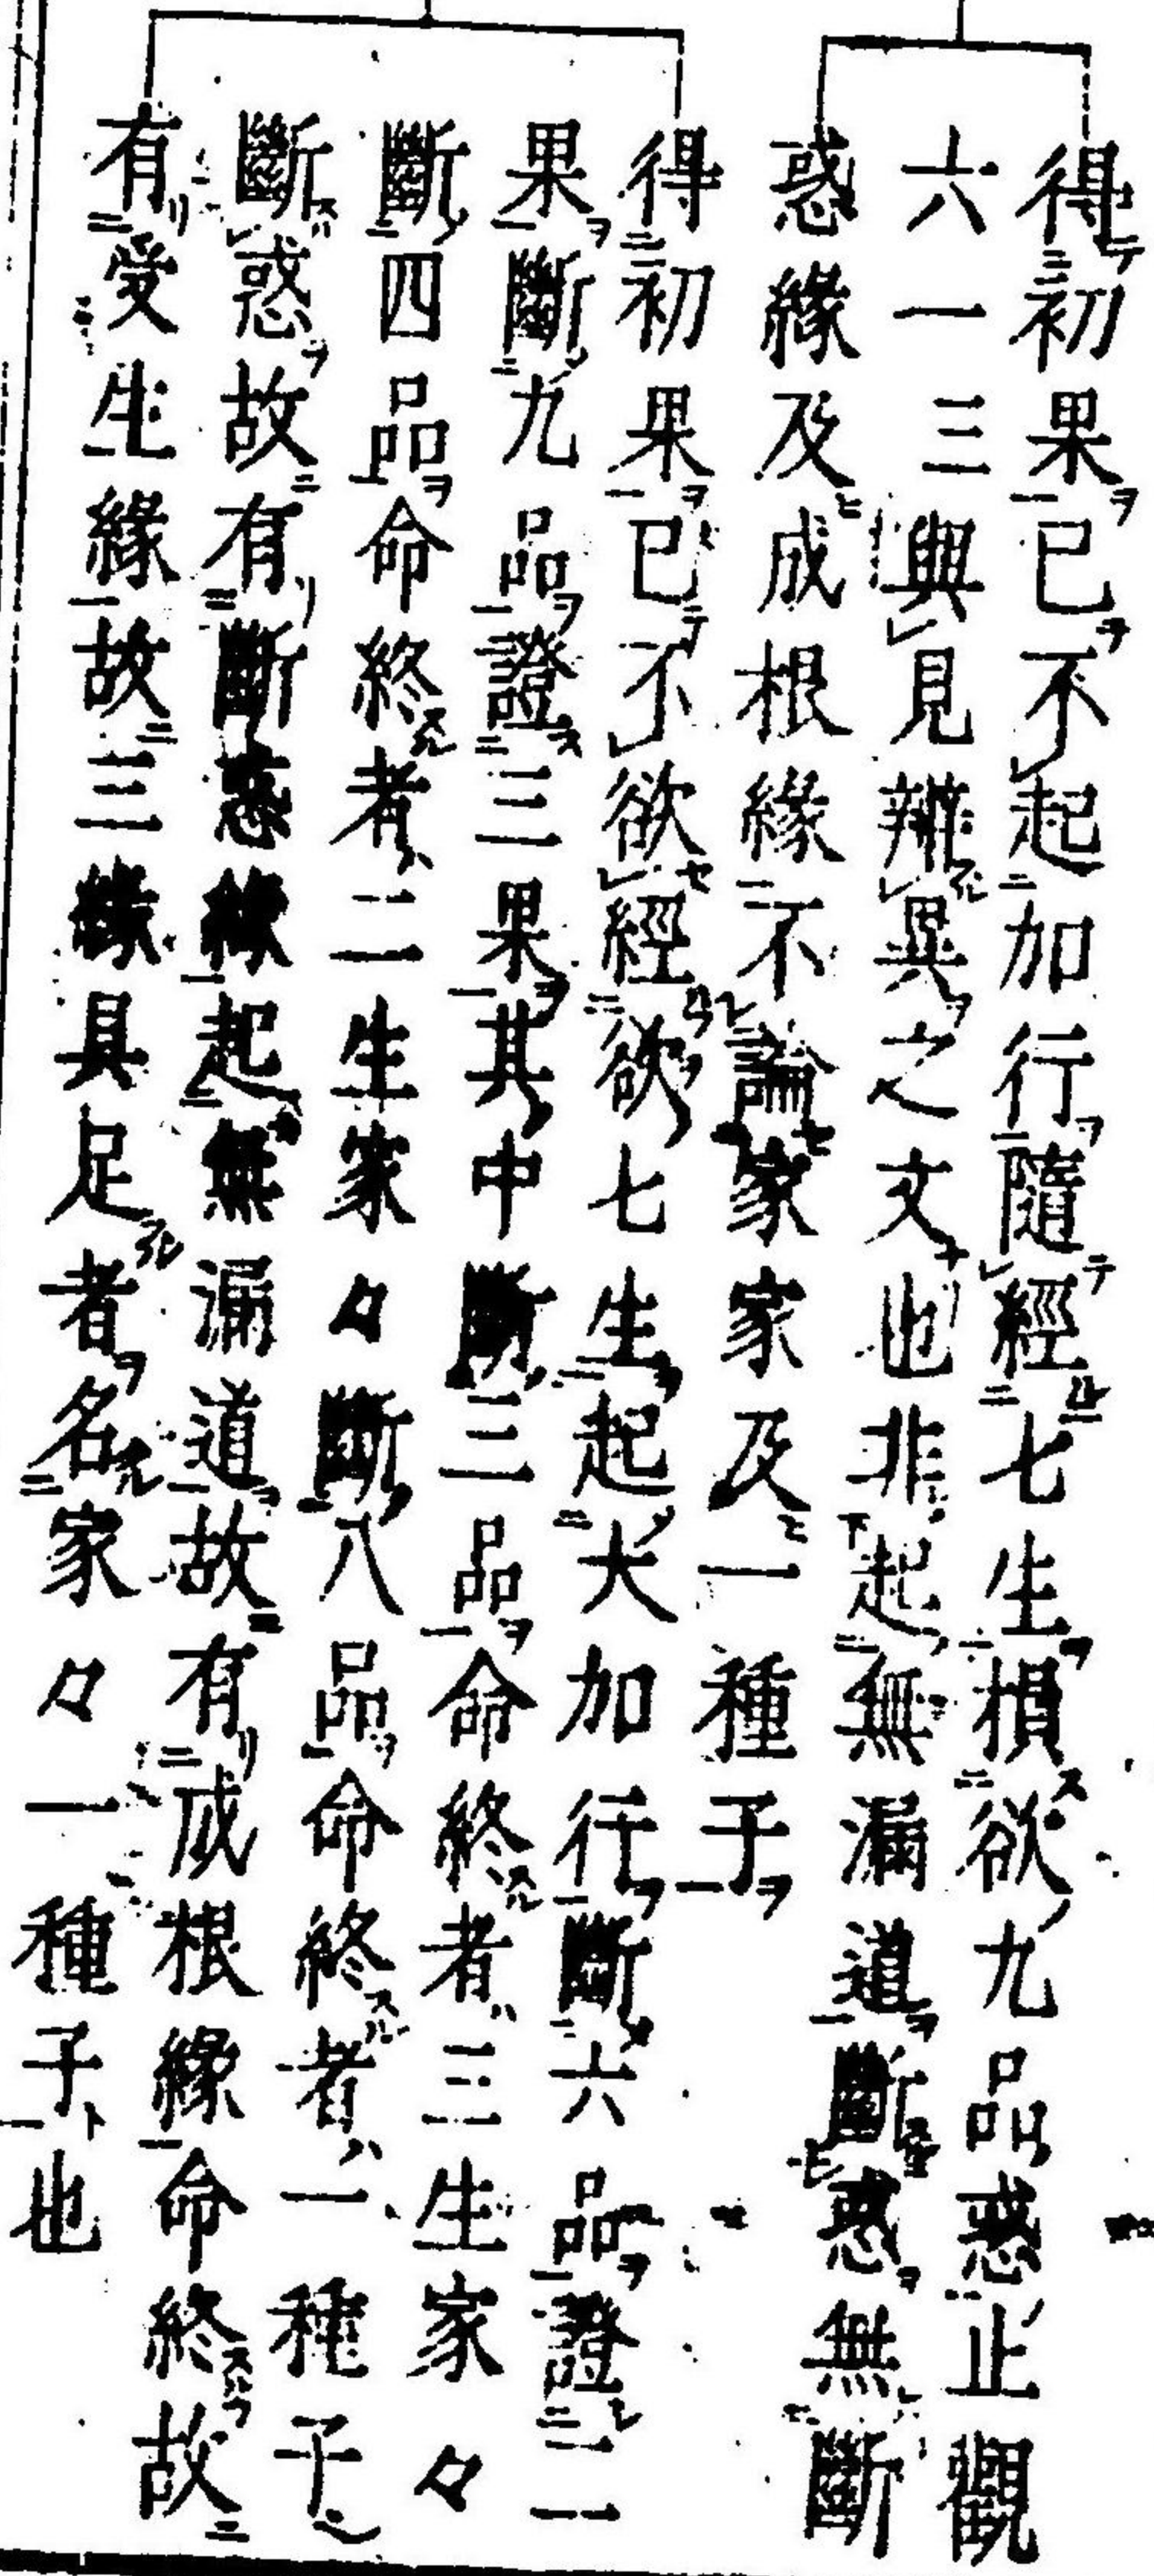 得初果已不起加行隨經七生損欲九品惑止觀
六一三與見辨異之文也非起無漏道斷惑無斷
惑緣及成根緣不論家家及一種子
得初果已不欲經欲七生起大加行斷六品證二
果斷九品證三果其中斷三品命終者三生家々
斷四品命終者二生家々斷八品命終者一種子
斷惑故有斷惑緣起無漏道故有成根緣命終故
有受生緣故三緣具足者名家々一種子也